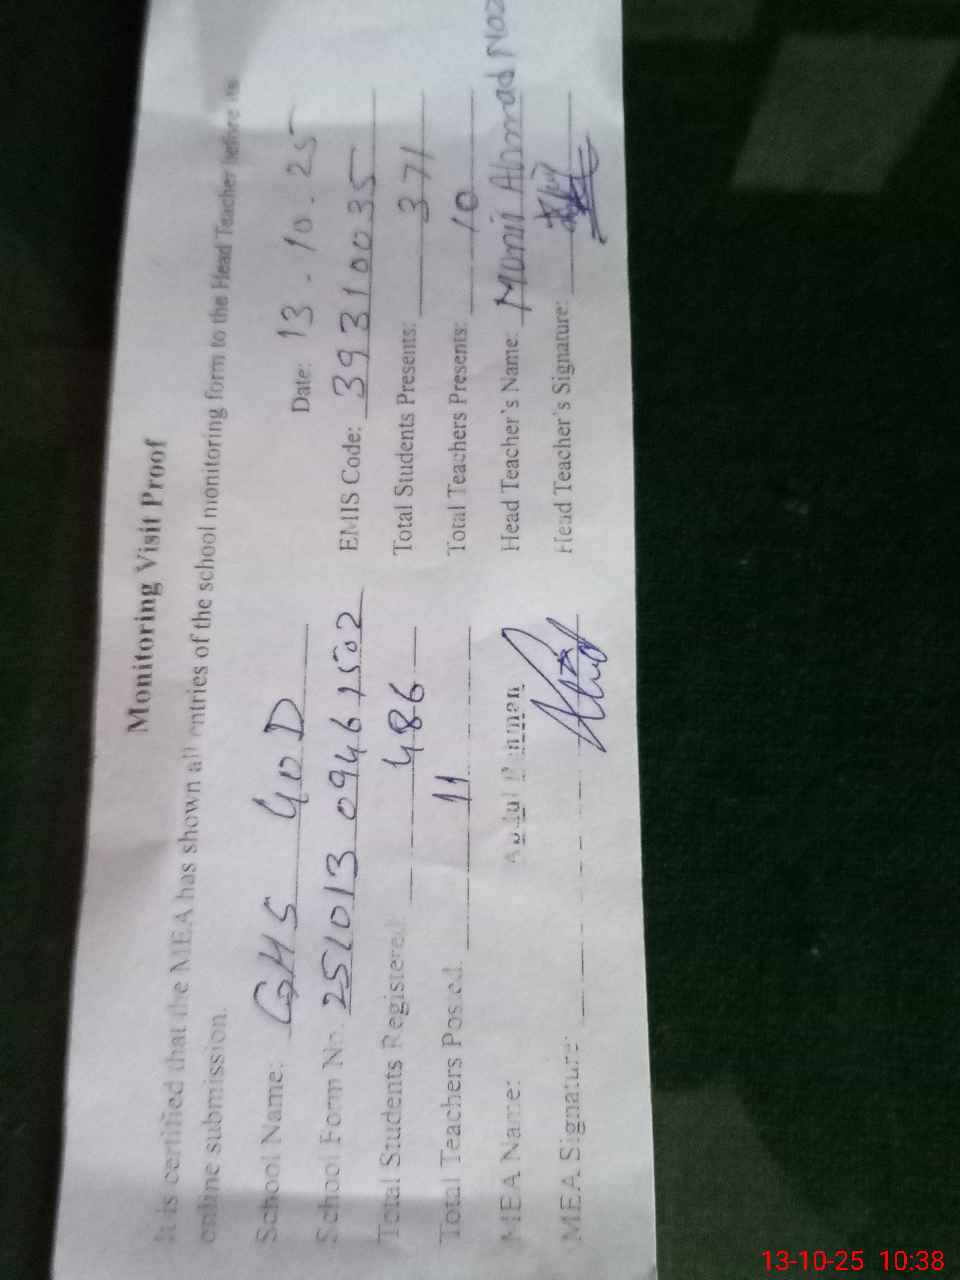 Monitoring Visit Proof
It is certified that the MEA has shown all entries of the school monitoring form to the Head Teacher before its
online submission.
Date: 13-10-25
School Name: GHS 40D
EMIS Code: 39310035
School Form No. 251013 0946 1502
Total Students Presents: 371
Total Students Registered: 486
Total Teachers Presents: 10
Total Teachers Posted: 11
Head Teacher's Name: Munir Ahmad
MEA Name: Abdul
Head Teacher's Signature:
MEA Signature:
13-10-25 10:38